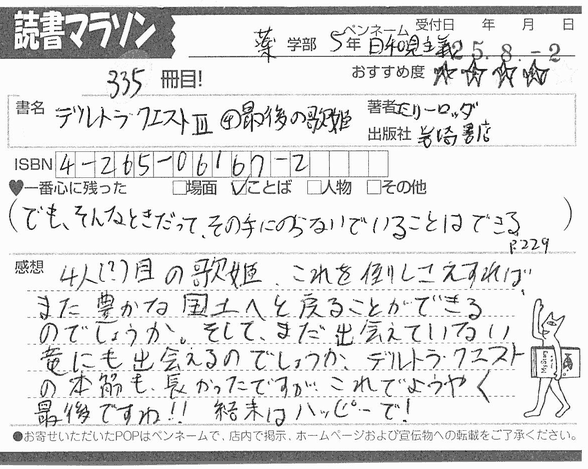 読書マラソン
ペンネーム 受付日 年 月 日
薬 学部 5年 日和見主義 25.8.-2
335 冊目! おすすめ度 ☆☆☆☆
書名 デルトラ・クエストⅢ ④最後の歌姫 著者 エミリーロッダ
出版社 岩崎書店
ISBN 4-265-06167-2
♥一番心に残った □場面 ☑ことば □人物 □その他
(でも、そんなときだって、その手にのらないでいることはできる)
P.229
感想 4人(?)目の歌姫、これを倒しさえすれば、
また豊かな国土へと戻ることができる
のでしょうか。そして、まだ出会えていない
竜にも出会えるのでしょうか、デルトラ・クエスト
の本筋も、長かったですが、これでようやく
最後ですね!! 結末はハッピーで!
●お寄せいただいたPOPはペンネームで、店内で掲示、ホームページおよび宣伝物への転載をご了承ください。